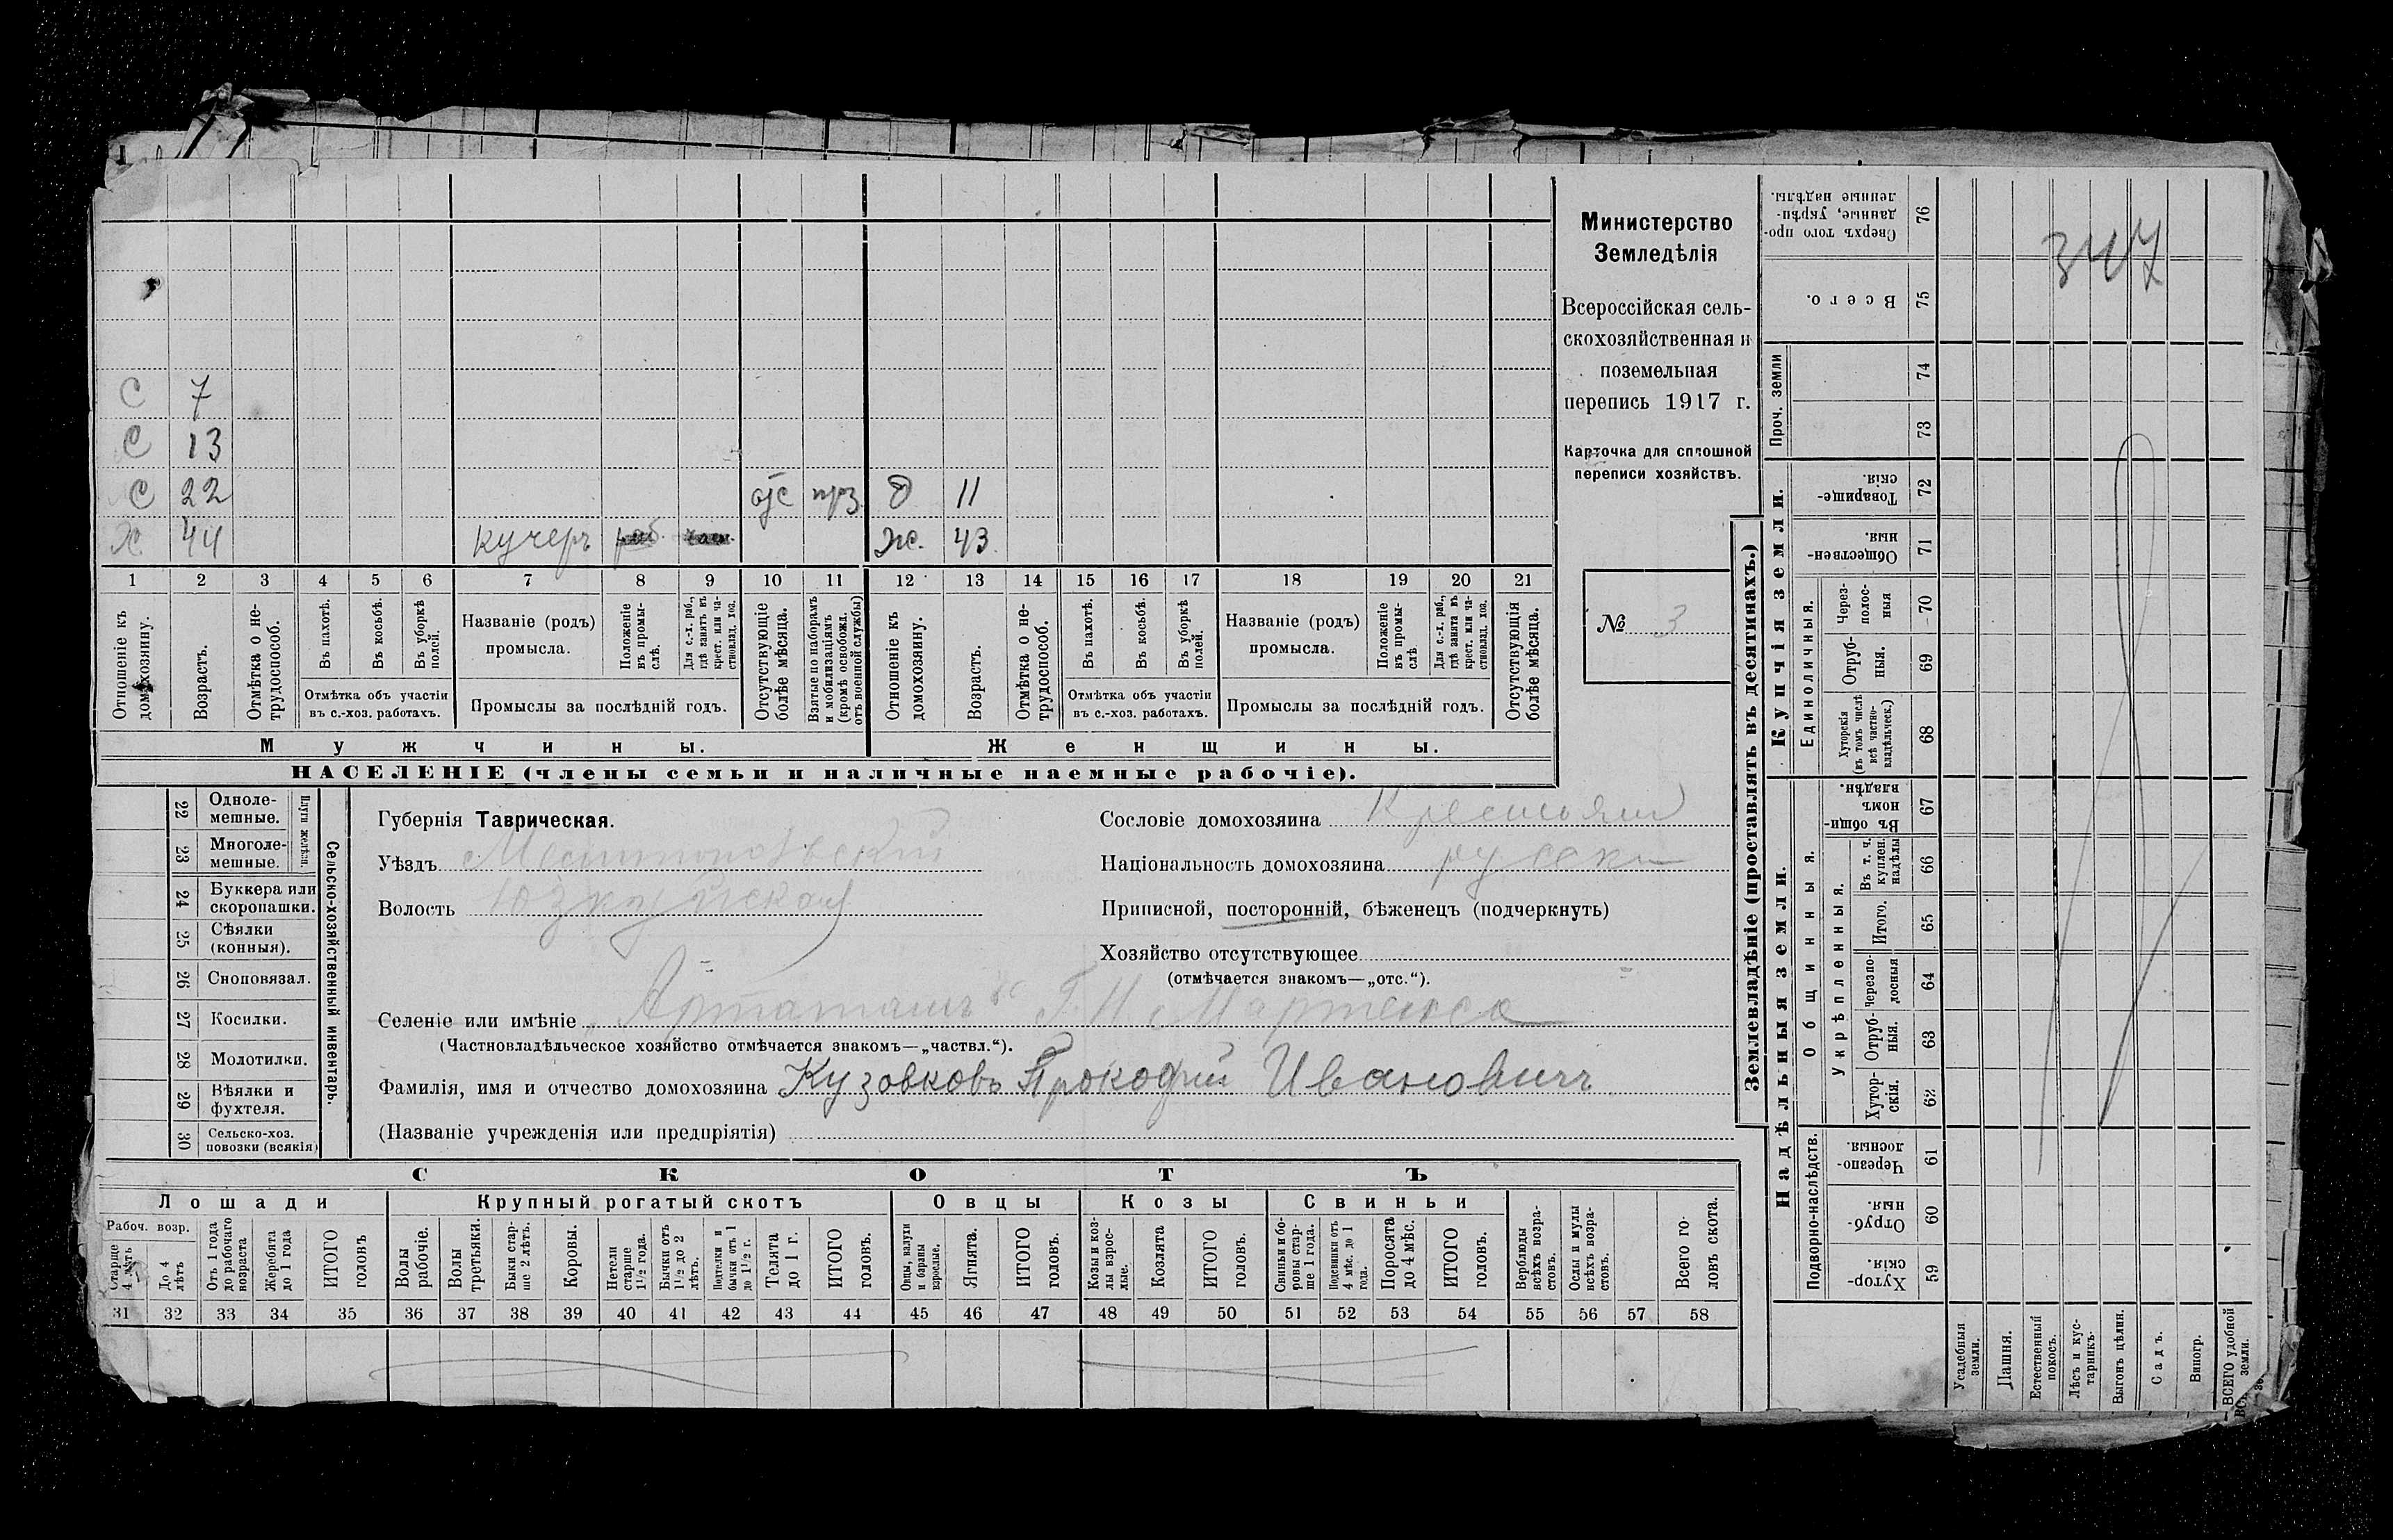 Министерство
Земледѣлія
Всероссійская сель-
скохозяйственная и
поземельная
перепись 1917 г.
Карточка для сплошной
переписи хозяйствъ.
№ 3
347
С 7
С 13
С 22 отс прз Д 11
Х. 44 кучеръ раб. Ж. 43
1 2 3 4 5 6 7 8 9 10 11 12 13 14 15 16 17 18 19 20 21
Отношеніе къ домохозяину.
Возрастъ.
Отмѣтка о не-трудоспособ.
Въ пахотѣ.
Въ косьбѣ.
Въ уборкѣ полей.
Отмѣтка объ участіи въ с.-хоз. работахъ.
Названіе (родъ) промысла.
Положеніе въ промы-слѣ.
Для с.-х. раб., гдѣ занятъ въ крест. или ча-стновлад. хоз.
Промыслы за послѣдній годъ.
Отсутствующіе болѣе мѣсяца.
Взятые по наборамъ и мобилизаціямъ (кромѣ освобожд. отъ военной службы)
Отношеніе къ домохозяину.
Возрастъ.
Отмѣтка о не-трудоспособ.
Въ пахотѣ.
Въ косьбѣ.
Въ уборкѣ полей.
Отмѣтка объ участіи въ с.-хоз. работахъ.
Названіе (родъ) промысла.
Положеніе въ промы-слѣ
Для с.-х. раб., гдѣ занята въ крест. или ча-стновлад. хоз.
Промыслы за послѣдній годъ.
Отсутствующія болѣе мѣсяца.
Мужчины. Женщины.
НАСЕЛЕНІЕ (члены семьи и наличные наемные рабочіе).
Сельско-хозяйственный инвентарь.
Плуги желѣзн.
22 Одноле-мешные.
23 Многоле-мешные.
24 Буккера или скоропашки.
25 Сѣялки (конныя).
26 Сноповязал.
27 Косилки.
28 Молотилки.
29 Вѣялки и фухтеля.
30 Сельско-хоз. повозки (всякія)
Губернія Таврическая.
Уѣздъ Мелитопольскій
Волость Юзкуйская
Сословіе домохозяина Крестьян
Національность домохозяина русски
Приписной, посторонній, бѣженецъ (подчеркнуть)
Хозяйство отсутствующее
(отмѣчается знакомъ—„отс.“).
Селеніе или имѣніе Г. Н. Мартенса
(Частновладѣльческое хозяйство отмѣчается знакомъ—„частвл.“).
Фамилія, имя и отчество домохозяина Кузовковъ Прокофій Ивановичъ
(Названіе учрежденія или предпріятія)
СКОТЪ
Лошади Крупный рогатый скотъ Овцы Козы Свиньи
Рабоч. возр.
Старше 4 лѣтъ
До 4 лѣтъ
Отъ 1 года до рабочаго возраста
Жеребята до 1 года
ИТОГО головъ
Волы рабочіе.
Волы третьяки.
Быки стар-ше 2 лѣтъ.
Коровы.
Нетели старше 1½ года.
Бычки отъ 1½ до 2 лѣтъ.
Подтелки и бычки отъ 1 до 1½ г.
Телята до 1 г.
ИТОГО головъ.
Овцы, валухи и бараны взрослые.
Ягнята.
ИТОГО головъ.
Козы и коз-лы взрос-лые.
Козлята
ИТОГО головъ.
Свиньи и бо-ровы стар-ше 1 года.
Подсвинки отъ 4 мѣс. до 1 года.
Поросята до 4 мѣс.
ИТОГО головъ.
Верблюды всѣхъ возра-стовъ.
Ослы и мулы всѣхъ возра-стовъ.
Всего го-ловъ скота.
31 32 33 34 35 36 37 38 39 40 41 42 43 44 45 46 47 48 49 50 51 52 53 54 55 56 57 58
Землевладѣніе (проставлять въ десятинахъ.)
Купчія земли.
Надѣльныя земли.
Сверхъ того про-данные, укрѣп-ленные надѣлы. 76
Всего. 75
Проч. земли 74
73
Товарище-скія. 72
Обществен-ныя. 71
Единоличныя.
Через-полос-ныя 70
Отруб-ныя. 69
Хуторскія (въ томъ числѣ всѣ частно-владѣльческ.) 68
Общинныя.
Въ общи-номъ владѣн. 67
Укрѣпленныя.
Въ т. ч. куплен. надѣлы 66
Итого. 65
Черезпо-лосныя 64
Отруб-ныя. 63
Хутор-скія. 62
Подворно-наслѣдств.
Черезпо-лосныя. 61
Отруб-ныя. 60
Хутор-скія. 59
Усадебныя земли.
Пашня.
Естественный покосъ.
Лѣсъ и кус-тарникъ.
Выгонъ цѣлин.
Садъ.
Виногр.
ВСЕГО удобной земли.